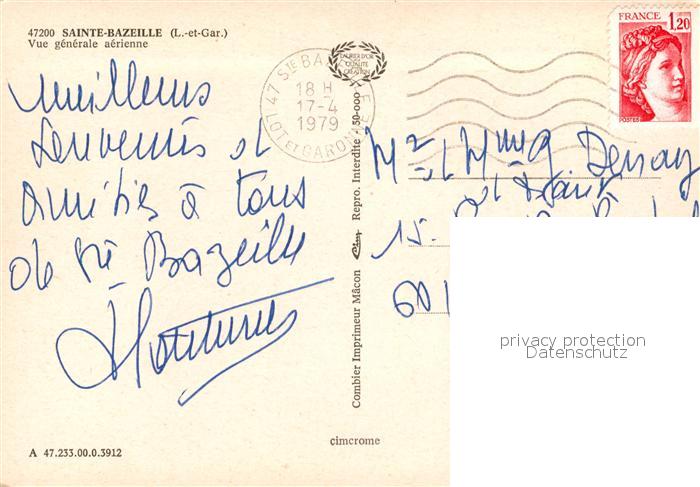 47200 SAINTE-BAZEILLE (L.-et-Gar.)
Vue générale aérienne
Meilleurs
souvenirs et
amitiés à tous
de Ste Bazeille
47 STE BA
18 H
17-4
1979
LOT ET GARONNE
LAURIER D'OR
DE LA
QUALITÉ
CRÉATION
FRANCE
1,20
POSTES
Mr et Mme
15.
60
Combier Imprimeur Mâcon Cim Repro. Interdite 150-000
cimcrome
A 47.233.00.0.3912
privacy protection
Datenschutz